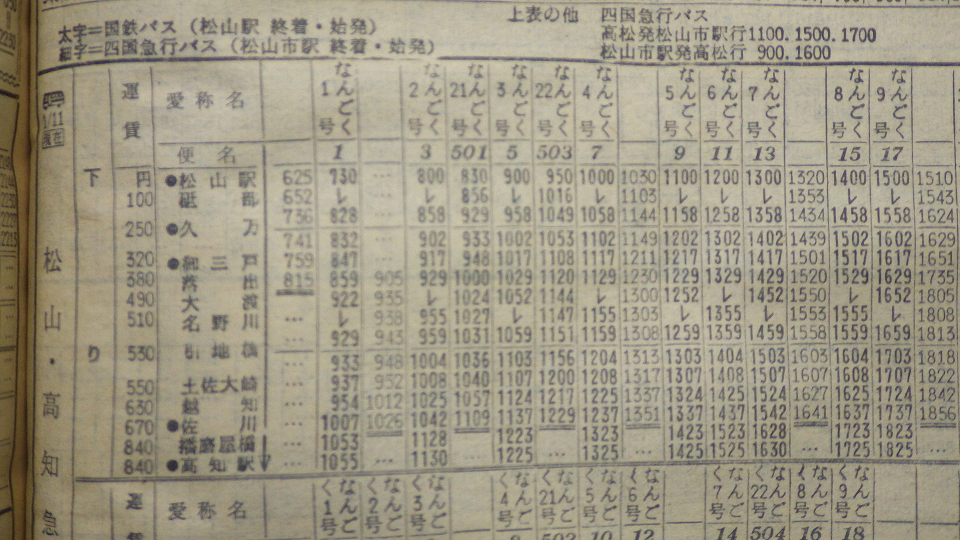 上表の他 四国急行バス
太字=国鉄バス(松山駅 終着・始発)
高松発松山市駅行1100.1500.1700
細字=四国急行バス(松山市駅 終着・始発)
松山市駅発高松行 900.1600
松山・高知急
下り
運賃 愛称名 なんごく1号 なんごく2号 なんごく21号 なんごく3号 なんごく22号 なんごく4号 なんごく5号 なんごく6号 なんごく7号 なんごく8号 なんごく9号
便名 1 3 501 5 503 7 9 11 13 15 17
円 ●松山駅 625 730 … 800 830 900 950 1000 1030 1100 1200 1300 1320 1400 1500 1510
100 砥部 652 レ … レ 856 レ 1016 レ 1103 レ レ レ 1353 レ レ 1543
250 ●久万 736 828 … 858 929 958 1049 1058 1144 1158 1258 1358 1434 1458 1558 1624
741 832 … 902 933 1002 1053 1102 1149 1202 1302 1402 1439 1502 1602 1629
320 ●御三戸 759 847 … 917 948 1017 1108 1117 1211 1217 1317 1417 1501 1517 1617 1651
380 落出 815 859 905 929 1000 1029 1120 1129 1230 1229 1329 1429 1520 1529 1629 1735
490 大渡 922 935 レ 1024 1052 1144 レ 1300 1252 レ 1452 1550 レ 1652 1805
510 名野川 … レ 938 955 1027 レ 1147 1155 1303 レ 1355 レ 1553 1555 レ 1808
530 引地橋 … 929 943 959 1031 1059 1151 1159 1308 1259 1359 1459 1558 1559 1659 1813
… 933 948 1004 1036 1103 1156 1204 1313 1303 1404 1503 1603 1604 1703 1818
550 土佐大崎 … 937 952 1008 1040 1107 1200 1208 1317 1307 1408 1507 1607 1608 1707 1822
630 越知 … 954 1012 1025 1057 1124 1217 1225 1337 1324 1425 1524 1627 1625 1724 1842
670 ●佐川 … 1007 1026 1042 1109 1137 1229 1237 1351 1337 1437 1542 1641 1637 1737 1856
840 播磨屋橋 … 1053 1128 1223 1323 1423 1523 1628 … 1723 1823
840 ●高知駅 … 1055 … 1130 … 1225 … 1325 … 1425 1525 1630 … 1725 1825 …
運賃 愛称名 なんごく1号 なんごく2号 なんごく3号 なんごく4号 なんごく21号 なんごく5号 なんごく6号 なんごく7号 なんごく22号 なんごく8号 なんごく9号
10 12 14 504 16 18